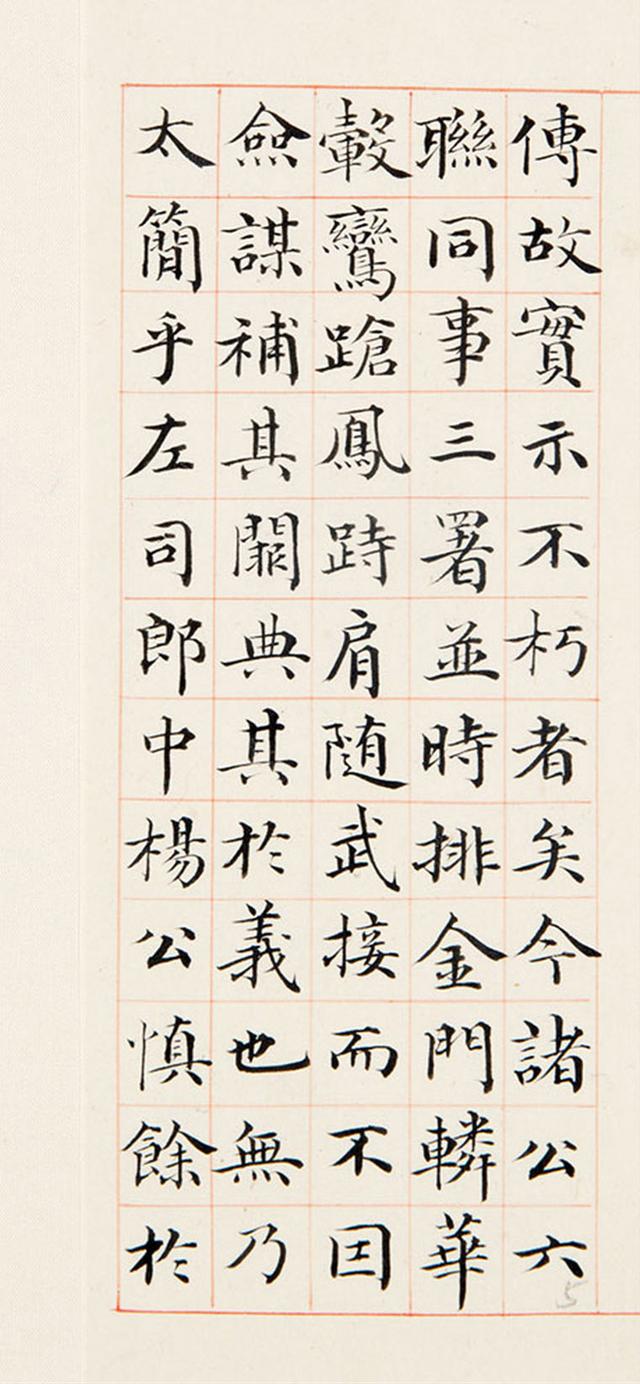 傳故實示不朽者矣今諸公六
聯同事三署並時排金門轔華
轂鸞蹌鳳跱肩随武接而不因
僉謀補其闕典其於義也無乃
太簡乎左司郎中楊公慎餘於
5